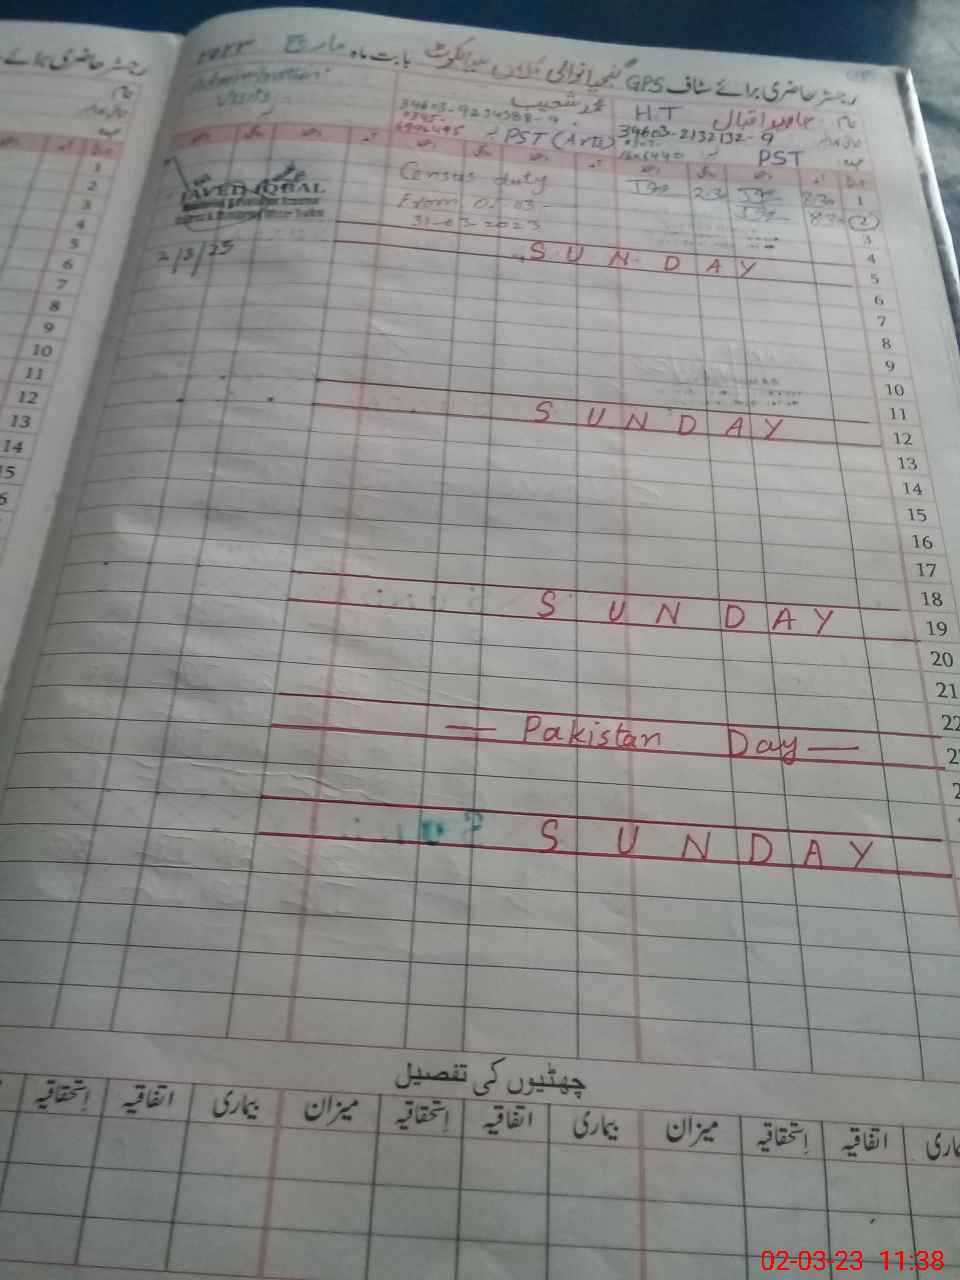 رجسٹر حاضری برائے سٹاف GPS گنجیانوالی کلاں سیالکوٹ بابت ماہ مارچ ۲۰۲۳
نام جاوید اقبال H.T
34603-2132132-9
PST
محمد شعیب
34603-9234588-9
PST (Arts)
Visits
1
2
3
4
5
6
7
8
9
10
11
12
13
14
15
16
17
18
19
20
21
22
Census duty
From 01-03-
31-03-2023
JAVED IQBAL
2/3/23
SUNDAY
SUNDAY
SUNDAY
— Pakistan Day —
SUNDAY
چھٹیوں کی تفصیل
اتفاقیہ اِستحقاقیہ میزان بیماری اتفاقیہ اِستحقاقیہ میزان بیماری اتفاقیہ اِستحقاقیہ
رجسٹر حاضری برائے
نام
1
2
3
4
5
6
7
8
9
10
11
12
13
14
02-03-23 11:38